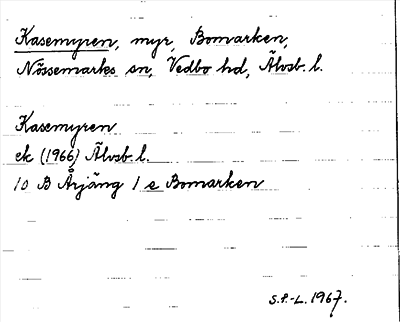 Kasemyren, myr, Bomarken,
Nössemarks sn, Vedbo hd, Älvsb. l.
Kasemyren
ek (1966) Älvsb. l.
10 B Årjäng 1 e Bomarken
S.F.-L. 1967.